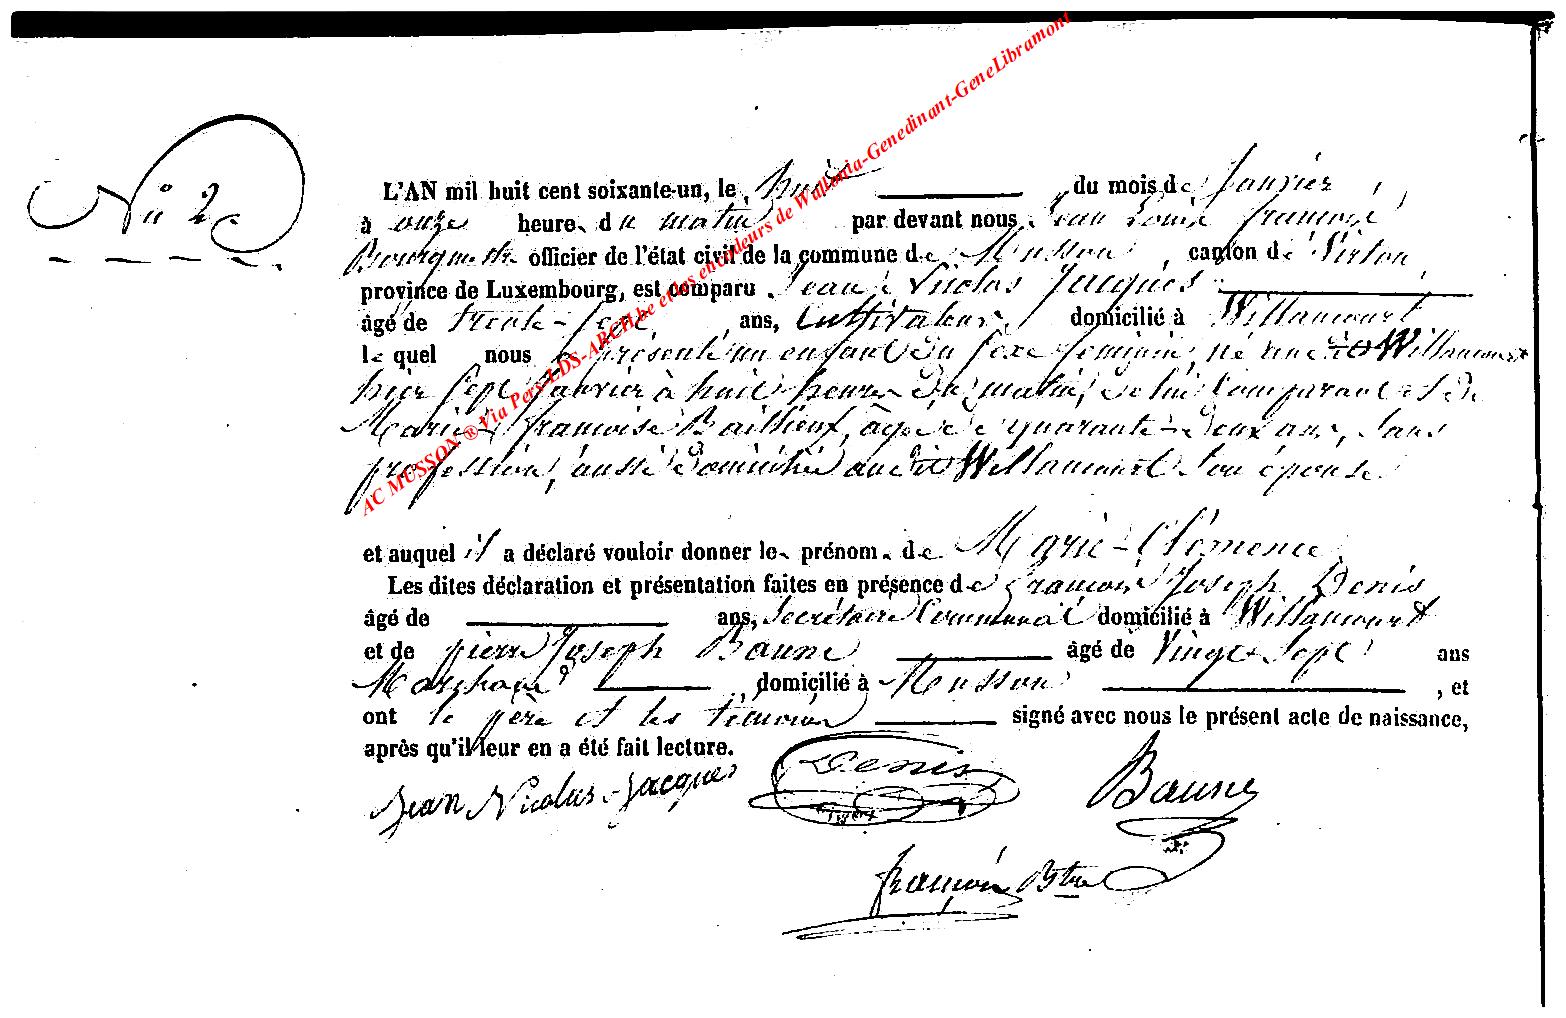 Nº 2
L'AN mil huit cent soixante-un, le huit du mois de Janvier,
à onze heure. du matin par devant nous Jean Louis françois
Bourgmestre officier de l'état civil de la commune de Musson, canton de Virton,
province de Luxembourg, est comparu Jean Nicolas Jacques
âgé de trente-sept ans, Cultivateur, domicilié à Willancourt
le quel nous a présenté un enfant du sexe féminin, né audit Willancourt
hier sept Janvier à huit heures du matin, de lui Comparant et de
Marie françoise Baillieux, âgée de quarante-deux ans, sans
profession, aussi domiciliée audit Willancourt son épouse
et auquel il a déclaré vouloir donner le prénom. de Marie-Clémence
Les dites déclaration et présentation faites en présence de françois Joseph Denis
âgé de ans, Secrétaire Communal domicilié à Willancourt
et de pierre Joseph Baune âgé de Vingt-Sept ans
Marchand domicilié à Musson, et
ont le père et les témoins signé avec nous le présent acte de naissance,
après qu'il leur en a été fait lecture.
Jean Nicolas Jacques Denis Baune
françois Btre
AC MUSSON ® Via Pers-LDS-ARCH.be et les encodeurs de Wallonia-Genedinant-GeneLibramont